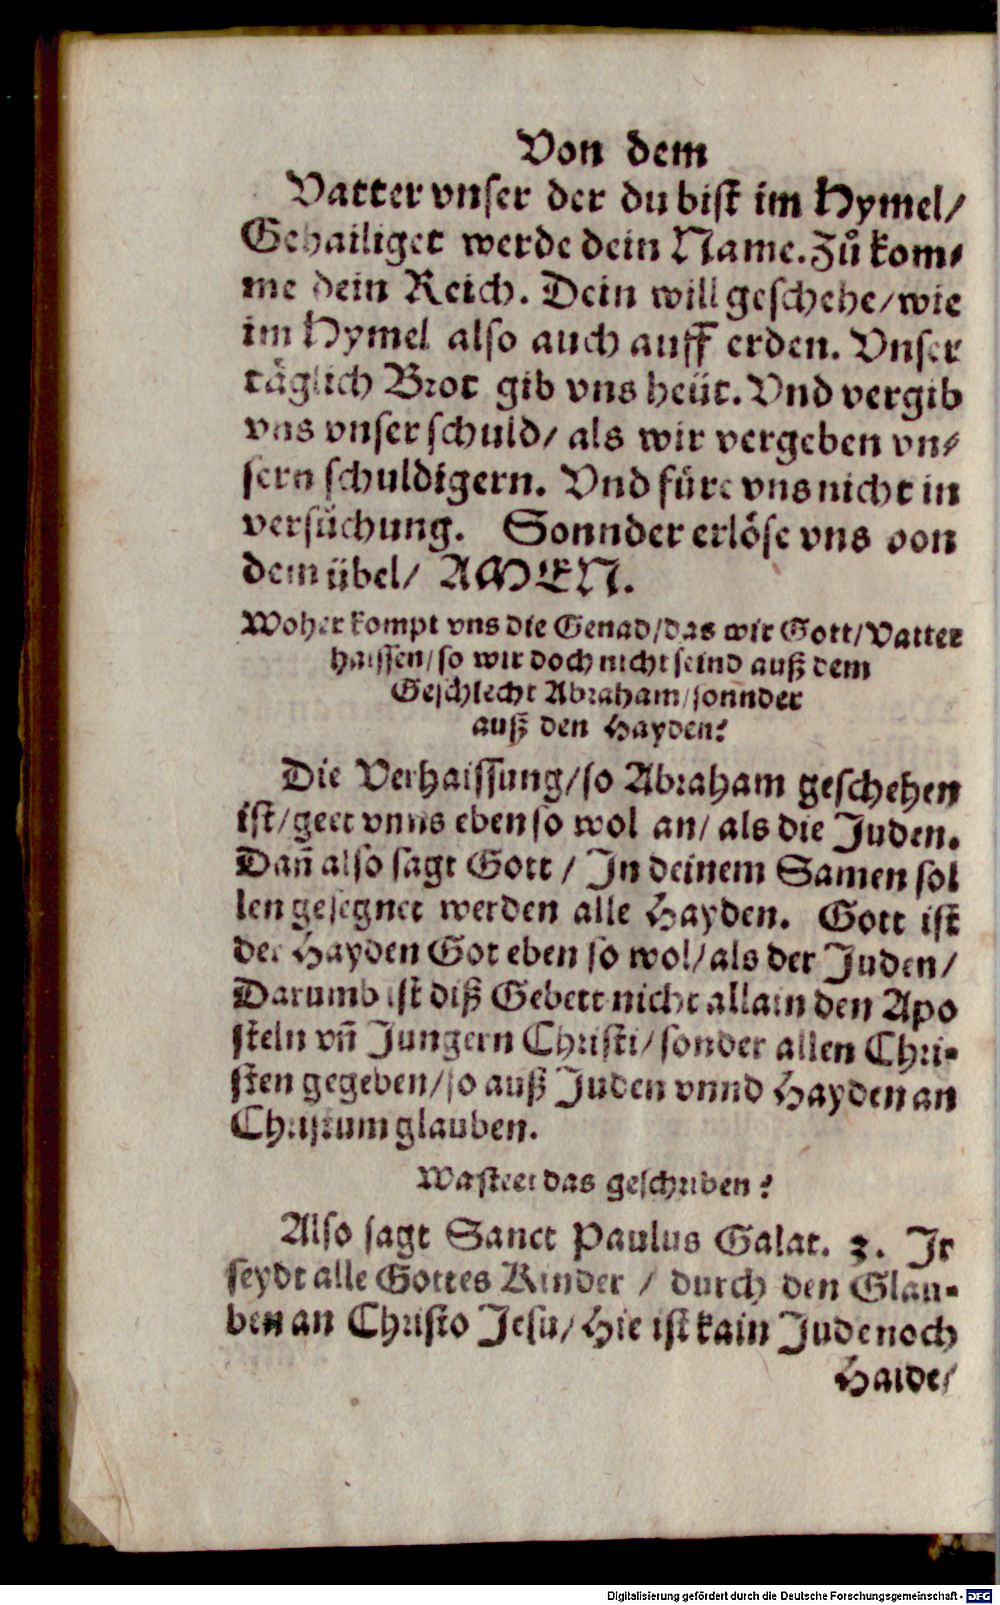 Von dem
Vatter vnser der du bist im Hymel/
Gehailiget werde dein Name. Zů kom⸗
me dein Reich. Dein will geschehe/ wie
im Hymel also auch auff erden. Vnser
täglich Brot gib vns heüt. Vnd vergib
vns vnser schuld/ als wir vergeben vn⸗
sern schuldigern. Vnd füre vns nicht in
versůchung. Sonnder erlöse vns von
dem übel/ AMEN.
Woher kompt vns die Genad/ das wir Gott/ Vatter
haissen/ so wir doch nicht seind auß dem
Geschlecht Abraham/ sonnder
auß den Hayden?
Die Verhaissung/ so Abraham geschehen
ist/ geet vnns eben so wol an/ als die Juden.
Dañ also sagt Gott / In deinem Samen sol
len gesegnet werden alle Hayden. Gott ist
der Hayden Got eben so wol/ als der Juden/
Darumb ist diß Gebett nicht allain den Apo
steln vñ Jungern Christi/ sonder allen Chri⸗
sten gegeben/ so auß Juden vnnd Hayden an
Christum glauben.
Wa steet das geschriben?
Also sagt Sanct Paulus Galat. 3. Jr
seydt alle Gottes Kinder / durch den Glau⸗
ben an Christo Jesu/ Hie ist kain Jude noch
Haide/
Digitalisierung gefördert durch die Deutsche Forschungsgemeinschaft - DFG